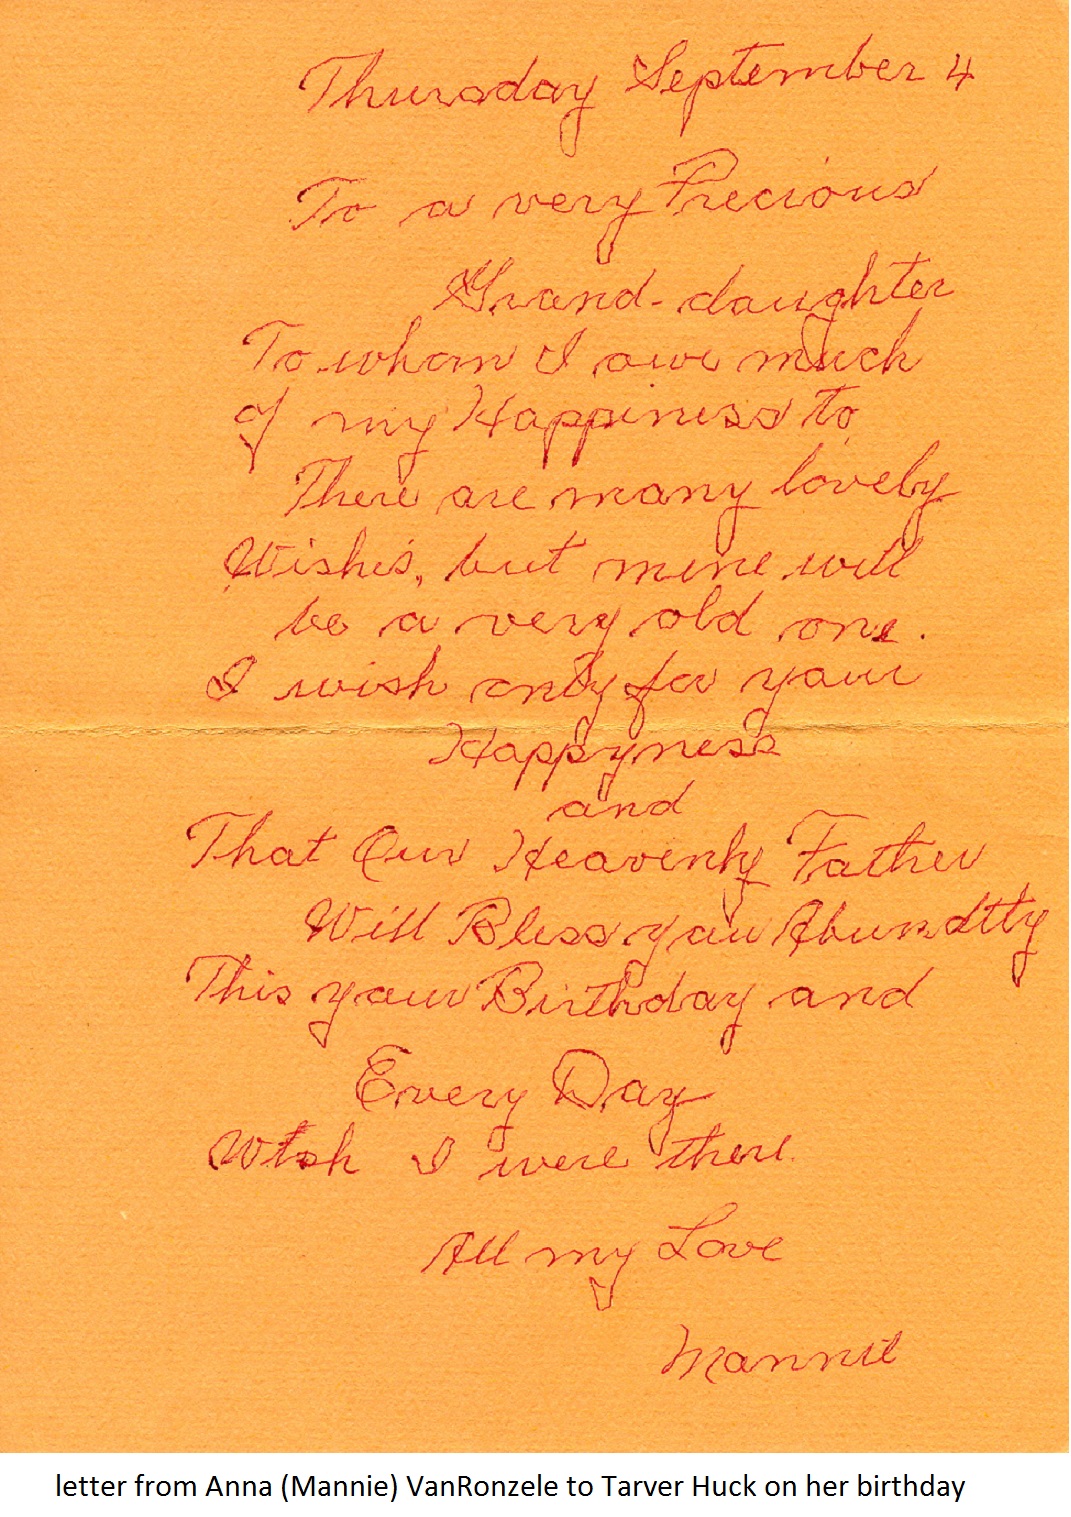 Thursday September 4
To a very Precious
Grand-daughter
To whom I owe much
of my Happiness to
There are many lovely
Wishes, but mine will
be a very old one.
I wish only for your
Happyness
and
That Our Heavenly Father
Will Bless you Abundtly
This your Birthday and
Every Day
Wish I were there.
All my Love
Mannie
letter from Anna (Mannie) VanRonzele to Tarver Huck on her birthday